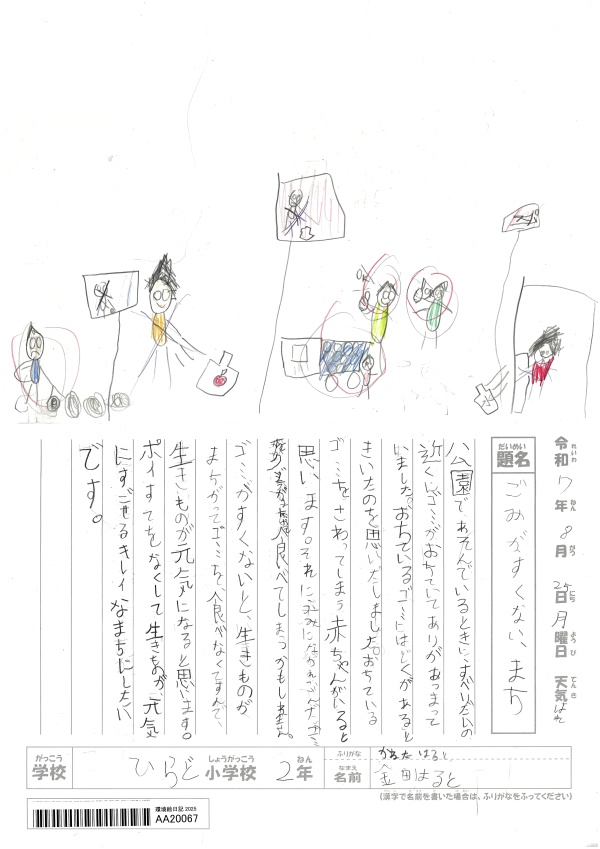 令和7年8月25日月曜日 天気はれ
れいわ ねん がつ にち ようび てんき
だいめい
題名 ごみがすくない、まち
公園であそんでいるときに、すべりだいの
近くにゴミがおちていてありがあつまって
いました。おちているゴミにはどくがあると
きいたのを思いだしました。おちている
ゴミをさわってしまう赤ちゃんがいると
思います。それに
食べてしまうかもしれません。
ゴミがすくないと、生きものが
まちがってゴミを、食べなくてすんで、
生きものが元気になると思います。
ポイすてをなくして生きものが元気
にすごせるキレイなまちにしたい
です。
がっこう しょうがっこう ねん
学校 ひらど小学校 2年
ふりがな かねだ はると
なまえ
名前 金田はると
(漢字で名前を書いた場合は、ふりがなをふってください)
環境絵日記 2025
AA20067